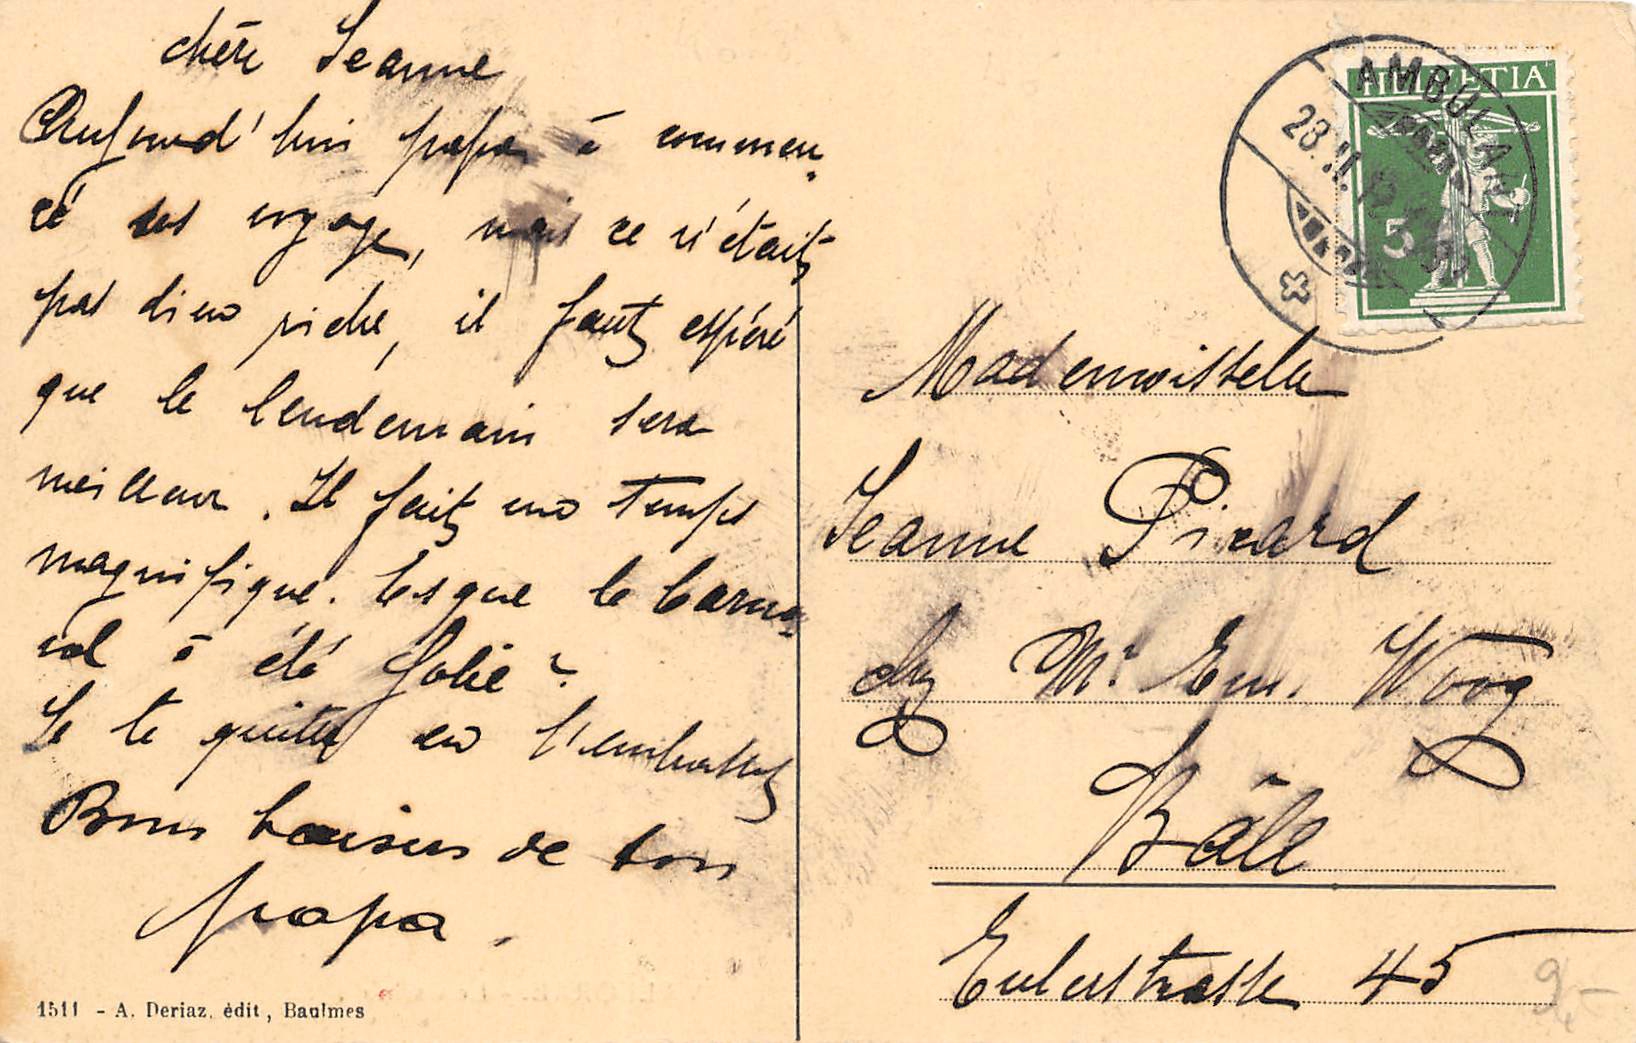 chère Jeanne
Aujourd'hui papa à commen-
cé ses voyage, mais ce n'était
pas bien riche, il faut espéré
que le lendemain sera
meilleur. Il fait un temps
magnifique. Esque le Carna-
val à été Jolie?
Je te quitte en t'embrassant
Bons baisers de ton
papa.
1511 - A. Deriaz, édit, Baulmes
HELVETIA
5
AMBULANT
23.II.
Mademoiselle
Jeanne Picard
chez Mr Em. Woog
Bâle
Eulerstrasse 45
9,-